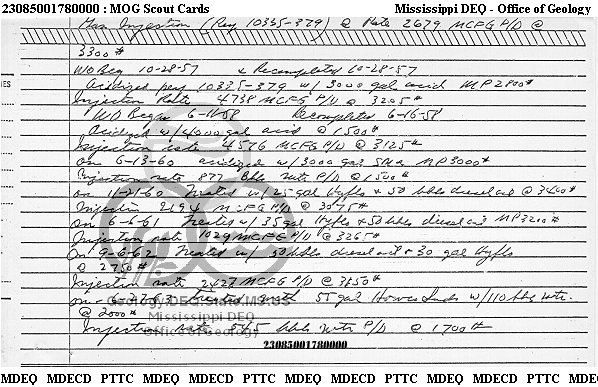 23085001780000 : MOG Scout Cards Mississippi DEQ - Office of Geology
Gas Injection (Perf 10335-379) @ Rate 2679 MCFG P/D @
3300#
WO Beg 10-28-57 & Recompleted 10-28-57
Acidized perf 10335-379 w/3000 gal acid MP 2800#
Injection Rate 4738 MCFG P/D @ 3205#
WO Began 6-11-58 Recompleted 6-16-58
Acidized w/4000 gal acid @ 1500#
Injection rate 4576 MCFG P/D @ 3125#
on 6-13-60 acidized w/3000 gal MP 3000#
Injection rate 877 Bbls Wtr P/D @ 1500#
on 11-21-60 Treated w/125 gal Hyflo + 50 bbls diesel oil @ 3400#
Injection 2194 MCFG P/D @ 3075#
On 6-6-61 Treated w/35 gal Hyflo + 50 bbls diesel oil MP 3200#
Injection rate 1029 MCFG P/D @ 3265#
On 9-6-62 Treated w/ 50 bbls diesel oil + 30 gal Hyflo
@ 2750#
Injection rate 2427 MCFG P/D @ 3650#
on 6-27-6 Treated with 55 gal w/110 bbls wtr.
@ 2000#
Injection Rate 545 bbls wtr P/D @ 1700#
Geology.DEQ.State.MS.US
Mississippi DEQ
Office of Geology
23085001780000
MDEQ MDECD PTTC MDEQ MDECD PTTC MDEQ MDECD PTTC MDEQ MDECD PTTC MDEQ